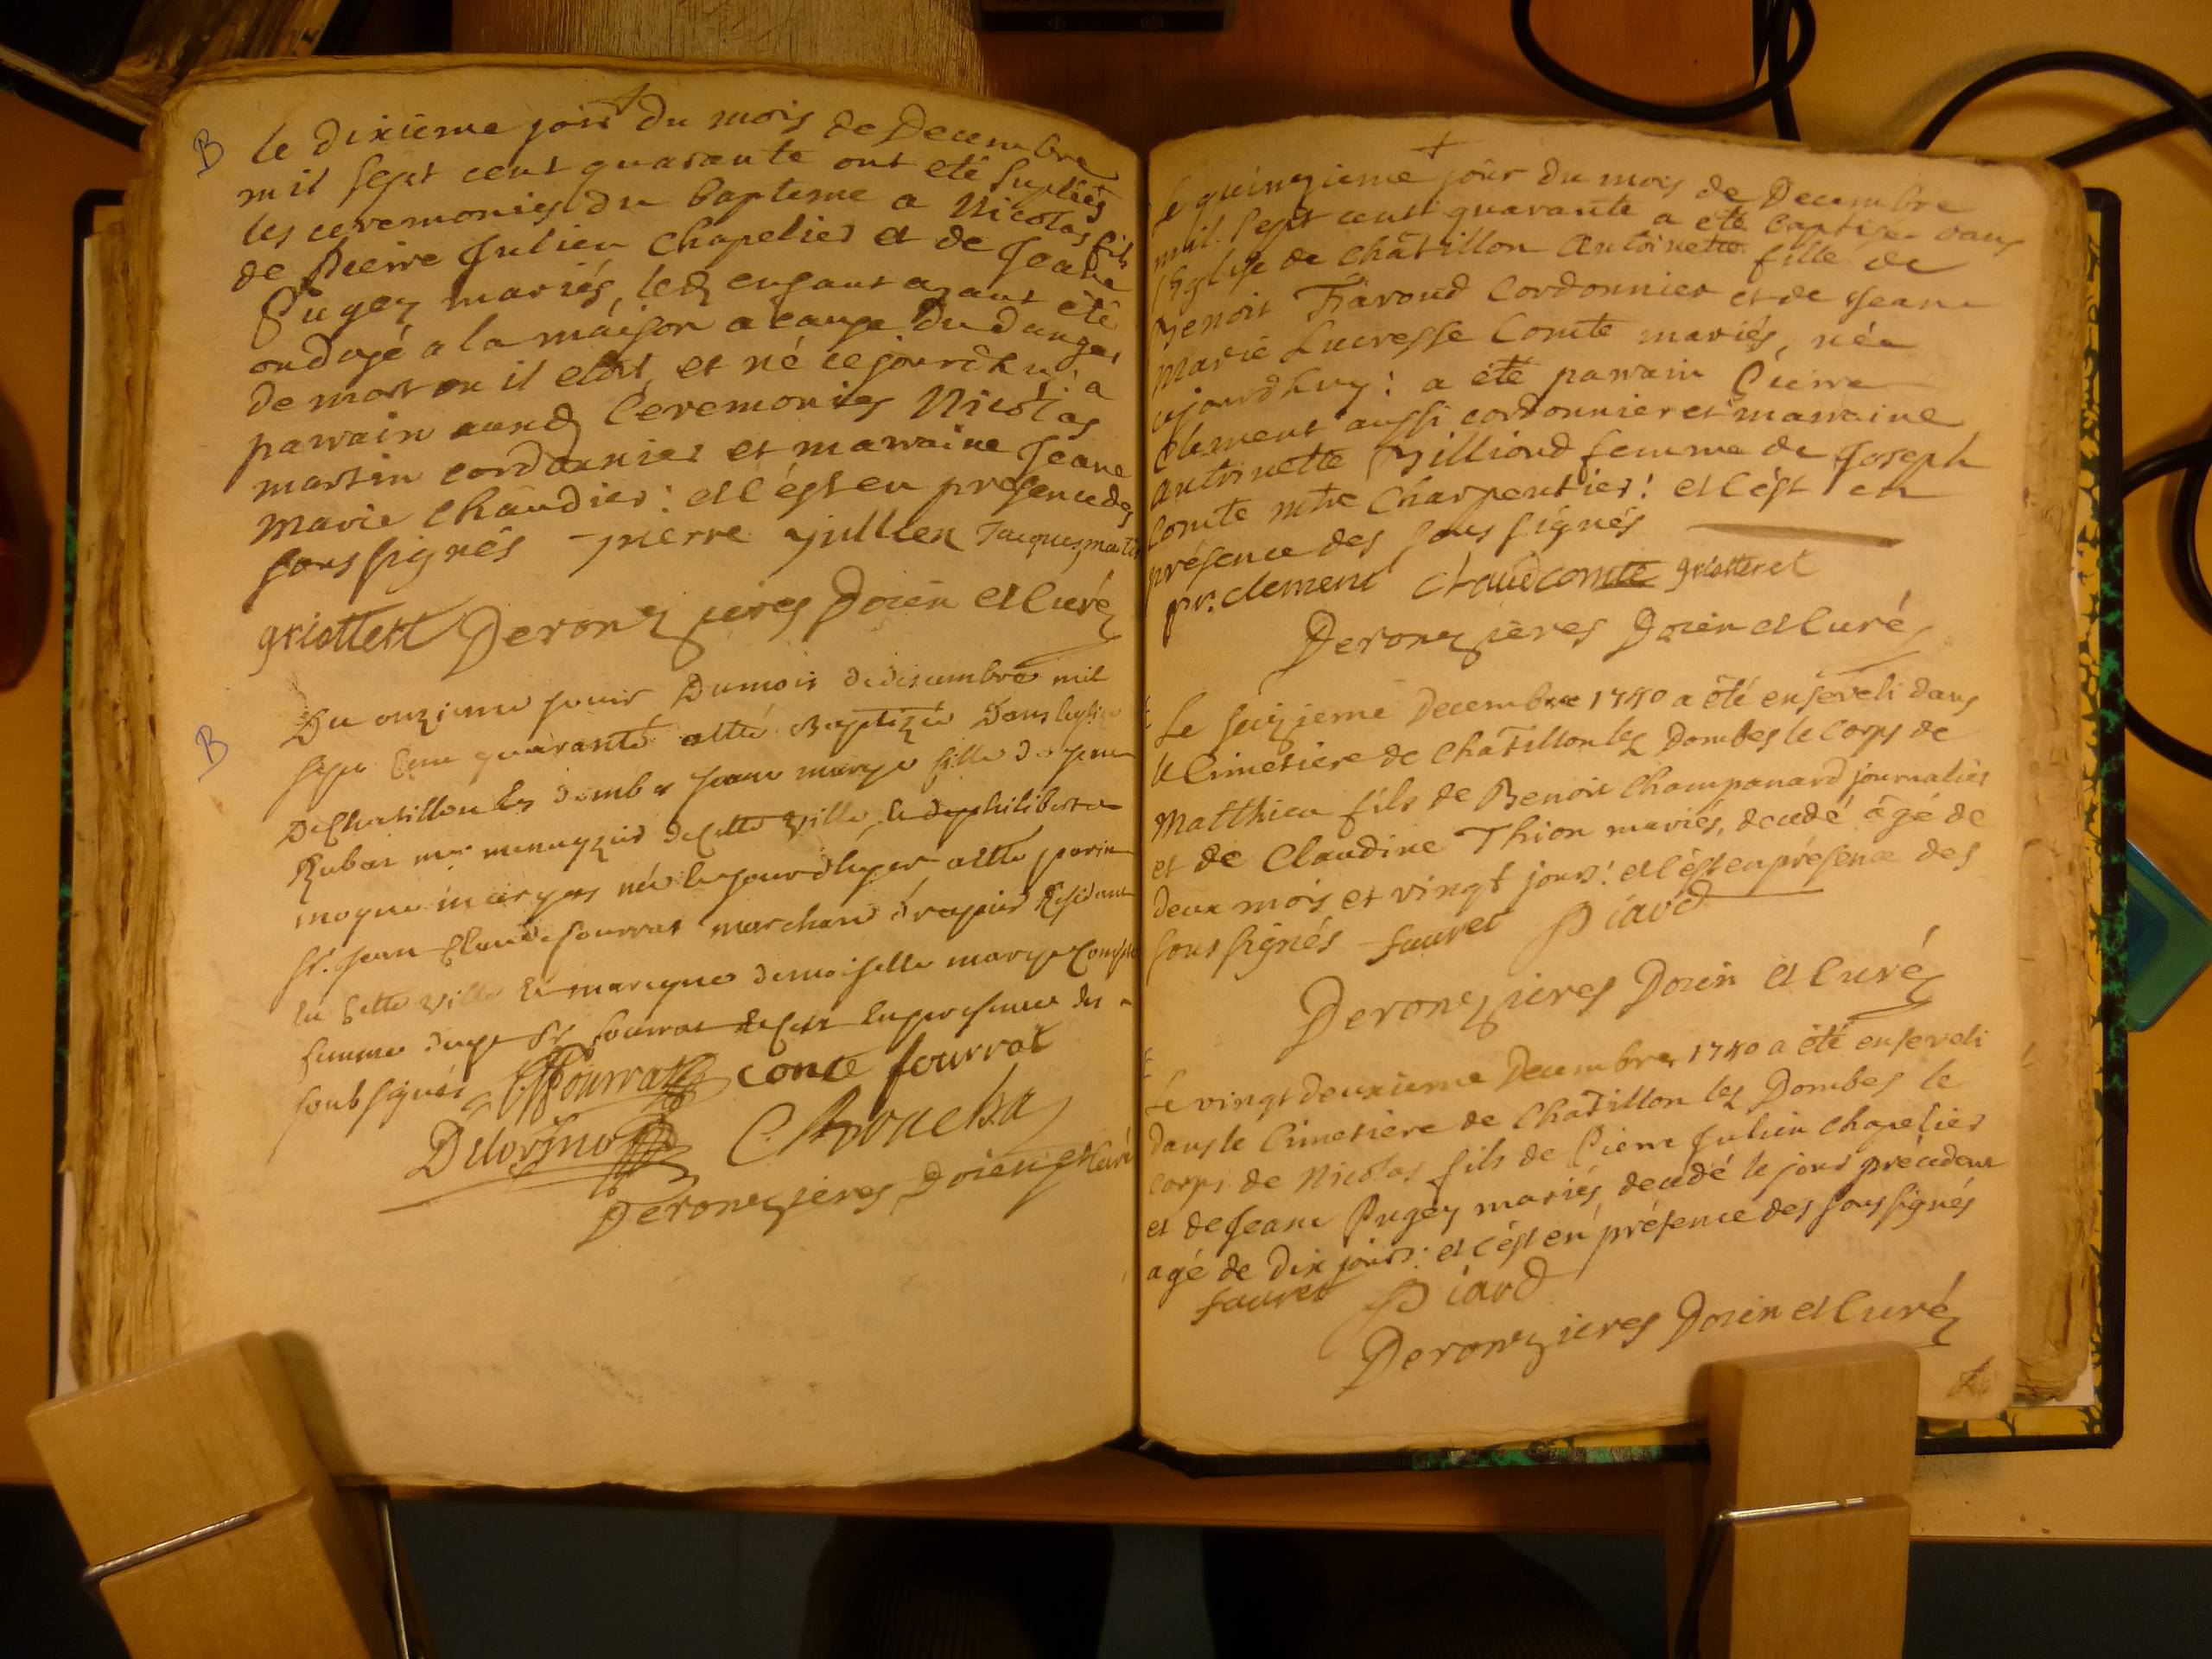 B
le dixieme jour du mois de Decembre
mil sept cent quarante ont eté supliées
les ceremonies du bapteme a Nicolas fils
de Pierre Julien Chapelier et de Jeane
Pugey mariés, led enfant ayant eté
ondoyé a la maison a cause du danger
de mort ou il etoit, et né cejourdhuy: a
parrain auxd Ceremonies Nicolas
martin cordonnier et marraine Jeane
Marie Chaudier: et c'est en presence des
soussignés pierre jullien Jacques martin
griotteret Deronzieres Doien et Curé
B
Du onzieme jour Du mois de decembre mil
sept Cent quarante a etté Baptizée Dans leglize
De Chatillon les dombes Jeanne marye fille de
mre menuyzier de cette ville, & de philiberte
née ce jourdhuy a etté parin
Sr. Jean Claude fourrat marchand drappier Residant
En Cette ville Et marayne demoiselle marye Comte
femme dud Sr fourrat Et Cest En presence des
soubsignés fourrat conte fourrat
Delorme
Deronzieres Doien et Curé
Le quinzieme jour du mois de Decembre
mil sept cent quarante a eté baptisée dans
l'Eglise de Chatillon Antoinette fille de
Benoit Favroud Cordonnier et de Jeane
Marie Lucresse Comte mariés, née
cejourdhuy: a eté parrain Pierre
Clement aussi cordonnier et marraine
antoinette Billioud femme de Joseph
Comte mtre Charpentier: et c'est en
présence des sous signés
pr. clement Claude comte griotteret
Deronzieres Doien et Curé
E
Le seizieme Decembre 1740 a été enseveli dans
le Cimetiere de Chatillon lez Dombes le corps de
Matthieu fils de Benoit Champanard journalier
et de Claudine Thion mariés, decedé agé de
deux mois et vingt jours: et c'est en présence des
sous signés fauret Piard
Deronzieres Doien et Curé
E
Le vingt deuxieme Decembre 1740 a été enseveli
dans le Cimetiere de Chatillon lez Dombes le
corps de Nicolas fils de Pierre Julien Chapelier
et de Jeane Pugey mariés, decedé le jour précédent
agé de dix jours: et c'est en présence des sous signés
fauret Piard
Deronzieres Doien et Curé